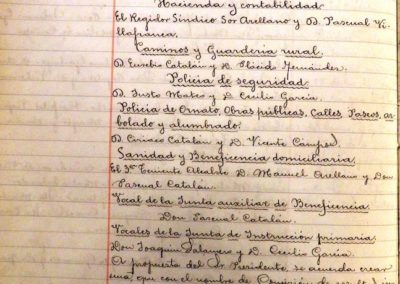 Hacienda y contabilidad
El Regidor Síndico Sor Arellano y D. Pascual Vi-
llafranca.
Caminos y Guardería rural.
D. Eusebio Catalán y D. Plácido Fernández.
Policía de seguridad.
D. Justo Mateo y D. Cecilio García.
Policía de Ornato, Obras públicas, Calles, Paseos, ar-
bolado y alumbrado.
D. Ciriaco Catalán y D. Vicente
Sanidad y Beneficencia domiciliaria.
El 3er Teniente Alcalde D. Manuel Arellano y Don
Pascual Catalán.
Vocal de la Junta auxiliar de Beneficencia.
Don Pascual Catalán.
Vocales de la Junta de Instrucción primaria.
Don Joaquín Salanero y D. Cecilio García.
A propuesta del Sr. Presidente, se acuerda crear
una, que con el nombre de Comisión de